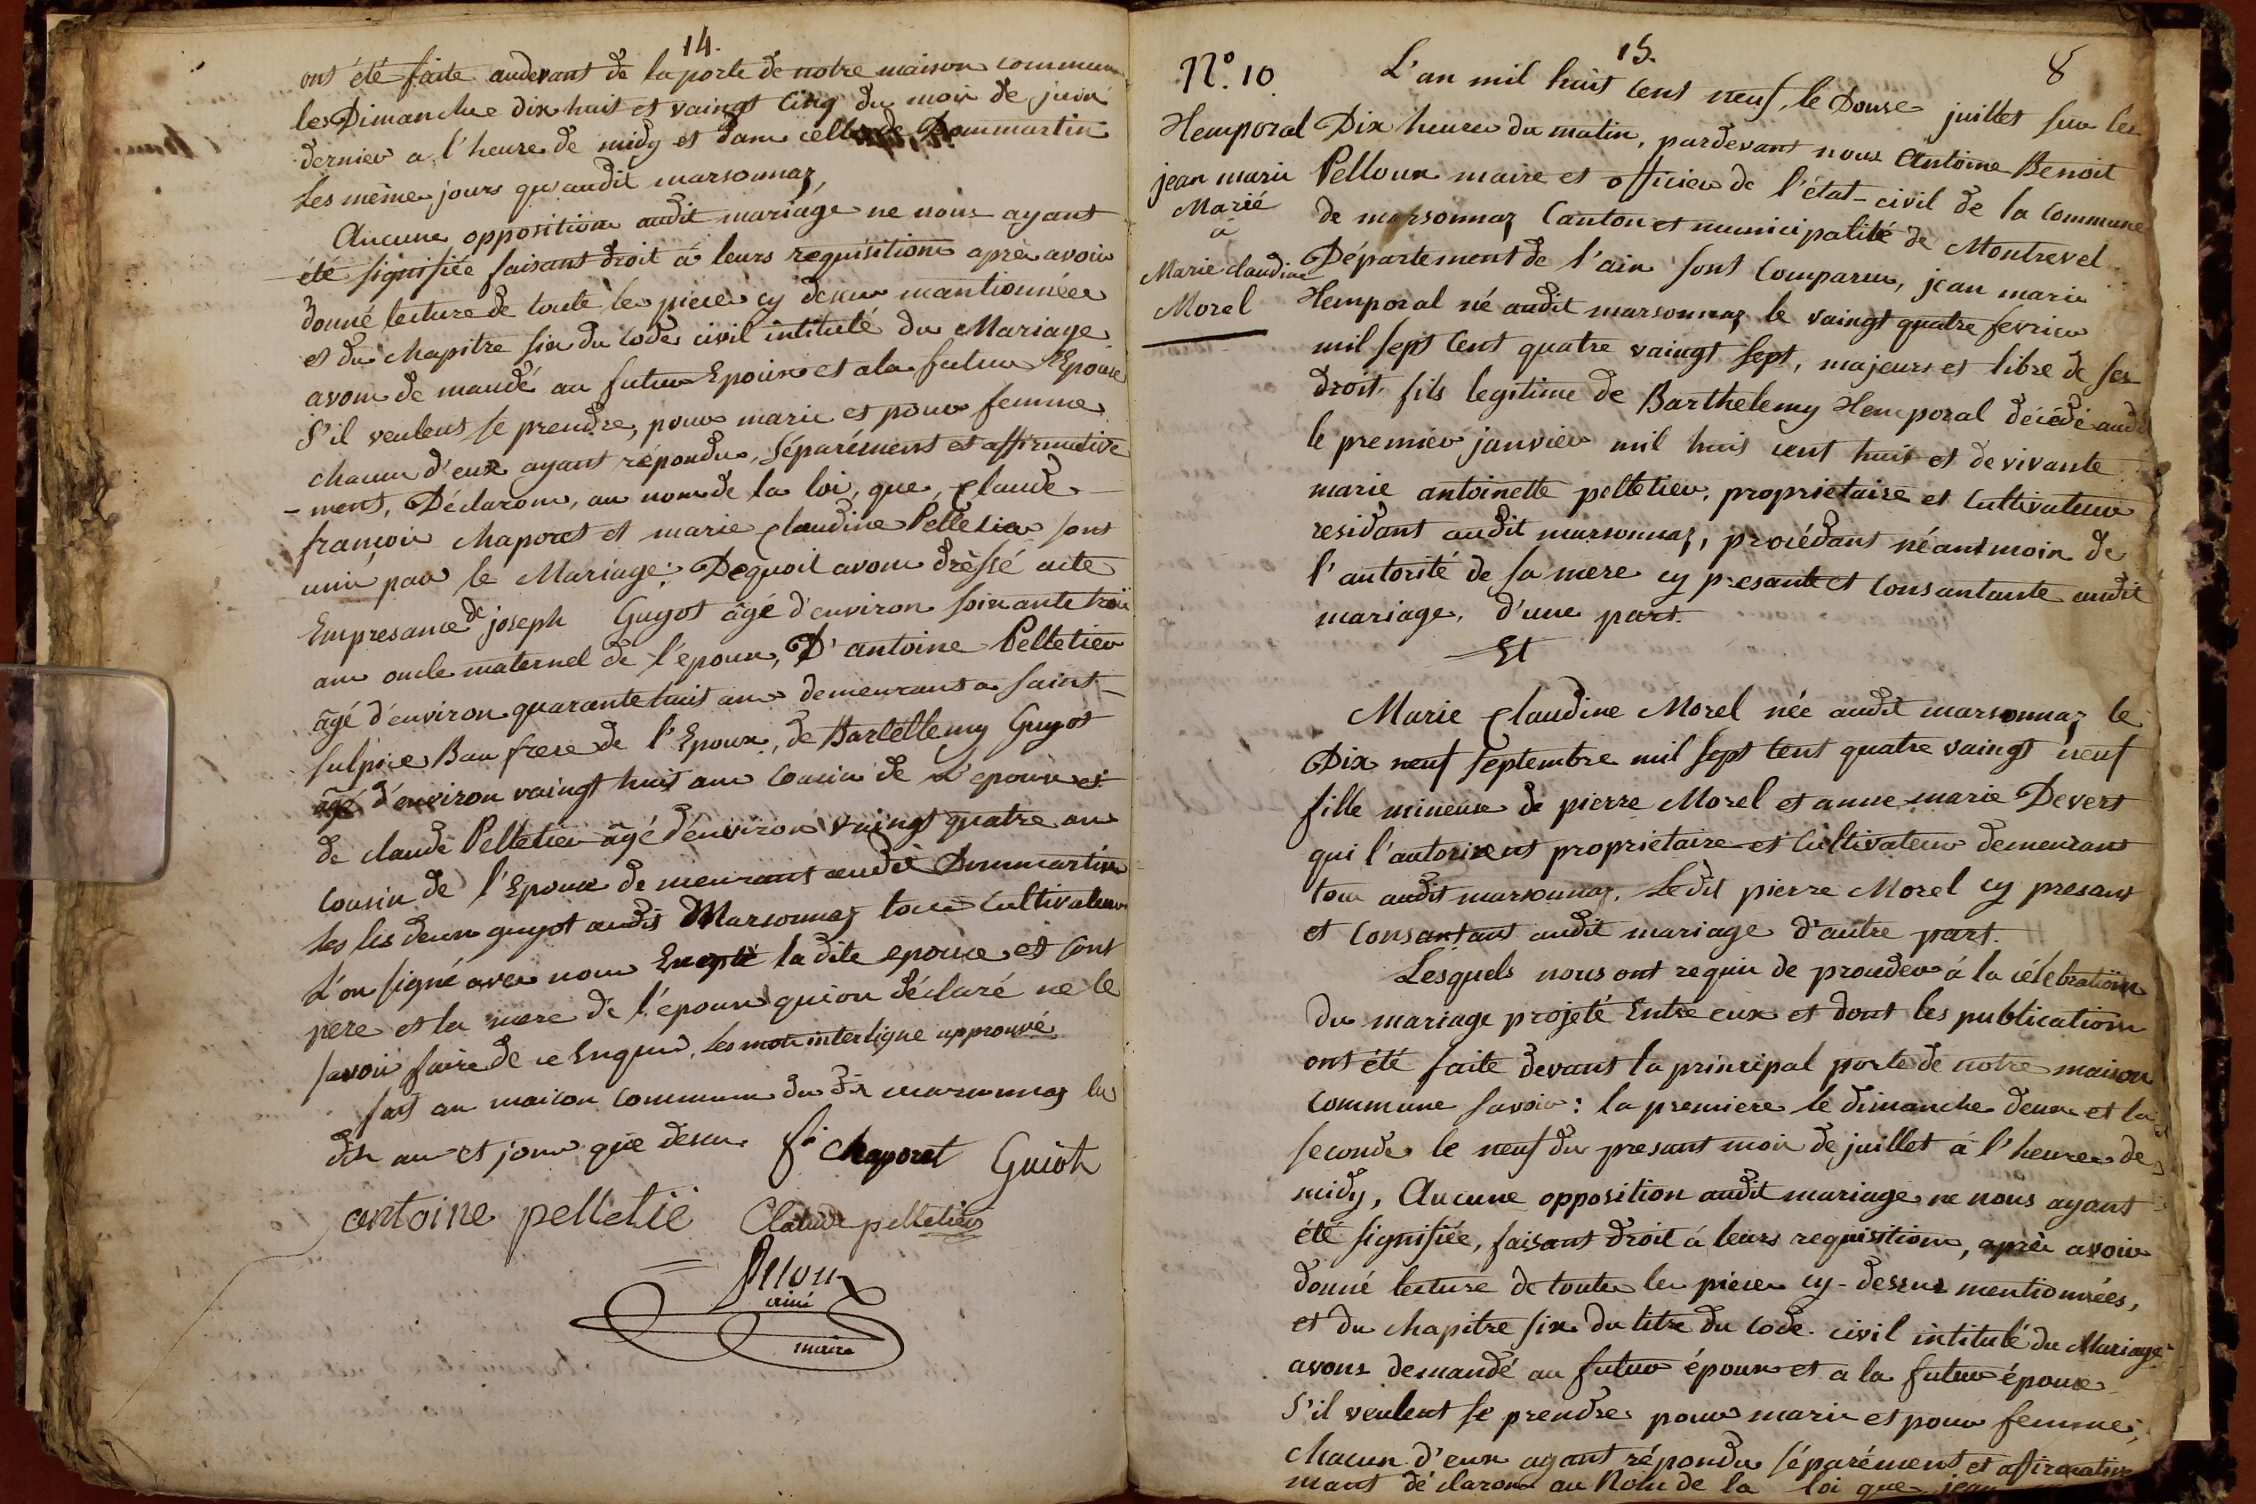 14.
ont été faite audevant de la porte de notre maison commune
les Dimanche dix huit et vaingt cinq du mois de juin
dernier a l'heure de midy et dans celle de Dommartin
les même jours qu'audit marsonnaz,
Aucune opposition audit mariage ne nous ayant
été signifiée faisant droit à leurs requisitions après avoir
donné lecture de toute les pieces cy dessus mantionnées
et du chapitre six du Code civil intitulé du Mariage
avons demandé au futur Epoux et a la future Epouse
S'il veulent se prendre, pour marie et pour femme
chacun d'eux ayant répondu, séparément et affirmative
-ment, Déclarons, au nom de la loi, que, Claude
françois chaporet et marie Claudine Pelletier sont
unis par le Mariage: Dequoit avons dressé acte
Enpresance de joseph Guyot âgé d'environ soixante trois
ans oncle maternel de l'époux, D'antoine Pelletier
âgé d'environ quarante huit ans demeurant a saint
sulpice Bau frere de l'Epoux, de Bartellemy Guyot
âgé d'environ vaingt huit ans Cousin de L'epoux et
de claude Pelletier âgé d'environ vaingt quatre ans
Cousin de l'Epouse demeurant audit Dommartin
les deux guyot audit Marsonnaz tous Cultivateurs
L'on signé avec nous Excepté ladite epouse et sont
pere et la mere de l'époux qui on déclaré ne le
savoir faire de ce Enquis. Les mots interligne approuvé
fait au maison Commune du dit marsonnaz les
dits an et jour que dessus. f.s chaporet Guiot
antoine pelletié Claude pelletier
Pelloux
ainé
maire
15.
8
N.º 10
Hemporal
jean marie
Marié
a
Marie claudine
Morel
L'an mil huit Cent neuf, le Douse juillet sur les
Dix heures du matin, pardevant nous Antoine Benoit
Pelloux maire et officier de l'état-civil de la Commune
de marsonnaz Canton et municipalité de Montrevel
Département de l'ain sont Comparus, jean marie
Hemporal né audit marsonnaz le vaingt quatre fevrier
mil sept Cent quatre vaingt sept, majeurs et libre de ses
droit, fils legitime de Barthelemy Hemporal décédé audit
le premier janvier mil huit cent huit et de vivante
marie antoinette pelletier, proprietaire et Cultivateur
residant audit marsonnaz, procédant néantmoin de
l'autorité de sa mere cy presante et Consantante audit
mariage, d'une part.
Et
Marie Claudine Morel née audit marsonnaz le
Dix neuf septembre mil sept Cent quatre vaingt neuf
fille mineure de pierre Morel et anne marie Devert
qui l'autorisent proprietaire et Cultivateur demeurant
tous audit marsonnaz. Ledit pierre Morel cy presant
et Consantant audit mariage d'autre part.
Lesquels nous ont requis de proceder à la célebration
du mariage projeté Entre eux et dont les publications
ont été faite devant la principal porte de notre maison
Commune savoir: la premiere le dimanche deux et la
seconde le neuf du presant mois de juillet à l'heure de
midy, Aucune opposition audit mariage ne nous ayant
été signifiée, faisant droit à leurs requisitions, après avoir
donné lecture de toutes les pieces cy-dessus mentionnées,
et du chapitre six du titre du Code civil intitulé du Mariage
avons demandé au futur époux et a la futur épouse
S'il veulent se prendre pour marie et pour femme,
chacun d'eux ayant répondu séparément et affirmative
mant déclarons au Nom de la loi que jean